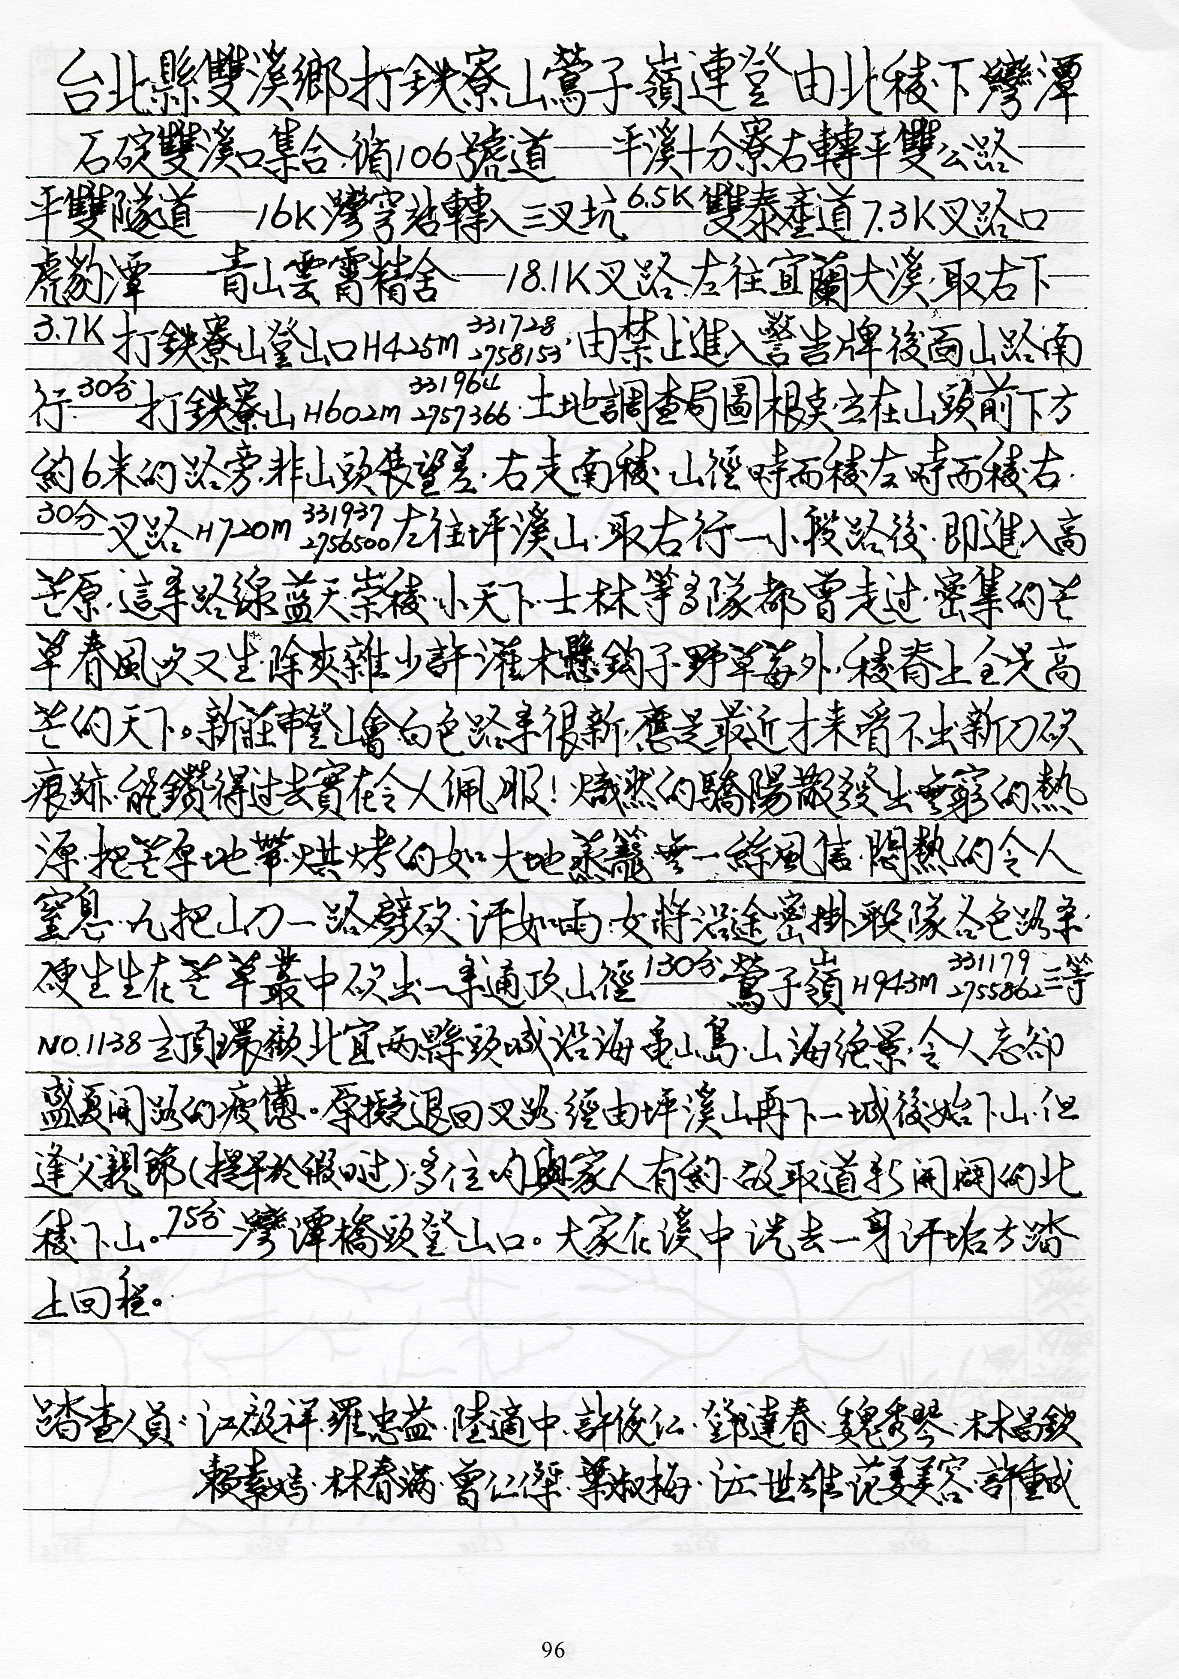 台北縣雙溪鄉打鉄寮山鶯子嶺連登由北稜下灣潭
石碇雙溪口集合.循106號道——平溪十分寮右轉平雙公路——
平雙隧道——16K灣穹站轉入三叉坑 6.5K 雙泰產道7.3K叉路口—
虎豹潭——青山雲霄精舍——18.1K叉路.左往宜蘭大溪.取右下—
3.7K 打鉄寮山登山口H425m 331728 2758153.由禁止進入警告牌後面山路南
行.30分 打鉄寮山H602m 331964 2957366.土地調查局圖根點立在山頭前下方
約6米的路旁.非山頭展望差.右走南稜.山徑時而稜左時而稜右.
30分 叉路H720m 331937 2756500左往坪溪山.取右行一小段路後.即進入高
芒原.這条路線藍天.崇稜.小天下.士林等多隊都曾走过.密集的芒
草春風吹又生.除夾雜少許灌木懸鈎子野草莓外.稜脊上全是高
芒的天下。新莊市登山會白色路条很新.應是最近才来看不出新刀砍
痕跡.能鑽得过去實在令人佩服!熾熱的驕陽散發出無窮的熱
源.把芒原地帶烘烤的如大地蒸籠.無一絲風信.悶熱的令人
窒息.九把山刀一路劈砍.汗如雨.女將沿途密掛聯隊各色路条.
硬生生在芒草叢中砍出一条通頂山徑 130分 鶯子嶺H943m 331179 2755862三等
NO.1138 立頂環顧北宜兩縣頭城沿海龜山島.山海絕景.令人忘卻
盛夏開路的疲憊。原擬退回叉路.經由坪溪山再下一城後始下山.但
逢父親節(提早於假日过).多位均與家人有約.故取道新開闢的北
稜下山。75分 灣潭橋頭登山口。大家在溪中洗去一身汗垢方踏
上回程。
踏查人員:江啟祥.羅忠益.陸適中.許俊仁.鄧達春.魏秀琴.林昌欽
賴素嫣.林春滿.曾仁傑.葉淑梅.江世雄.范姜美容.許重成
96